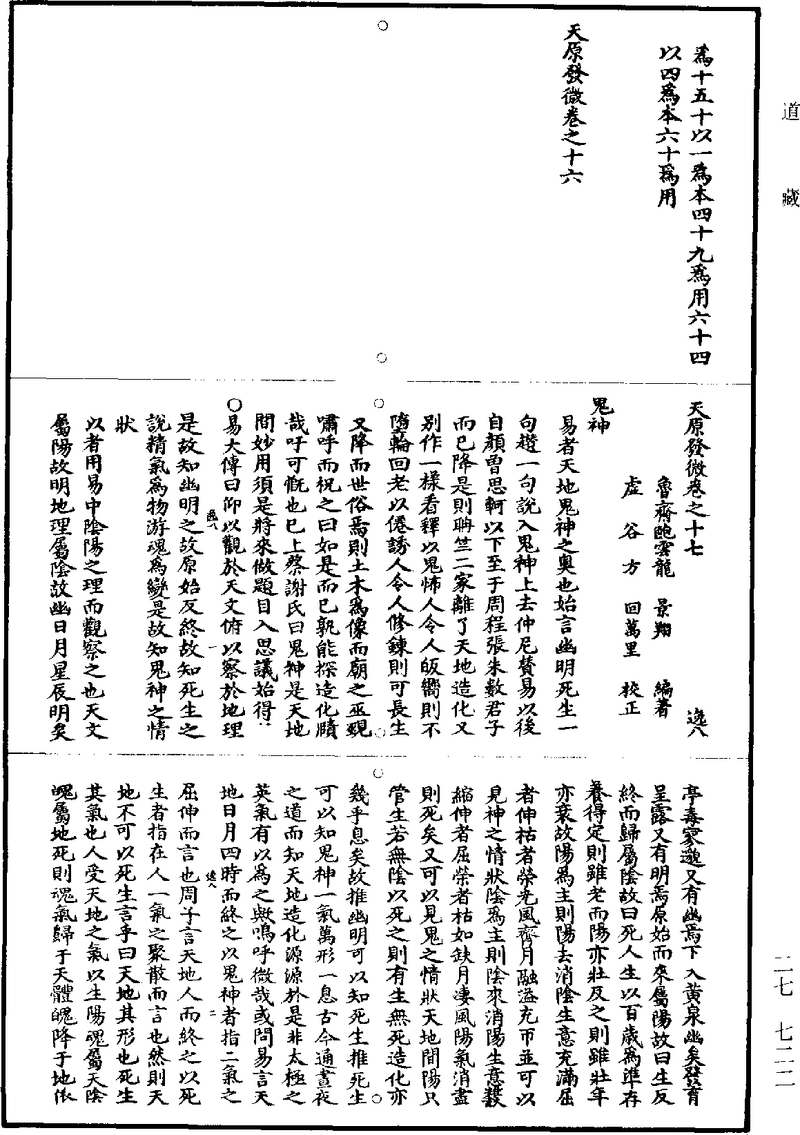 道藏
爲十五十以一爲本四十九爲用六十四
以四爲本六十爲用
天原發微卷之十六
天原發微卷之十七
逸八
魯齋鮑雲龍景翔編著
虛谷方回萬里校正
鬼神
易者天地鬼神之奧也始言幽明死生一
句趲一句說入鬼神上去仲尼贊易以後
自顏曾思軻以下至于周程張朱數君子
而已降是則聃竺二家離了天地造化又
別作一樣看釋以鬼怖人令人皈嚮則不
墮輪回老以僊誘人令人修鍊則可長生
又降而世俗焉則土木爲像而廟之巫覡
嘯呼而祝之曰如是而已孰能探造化賾
哉吁可慨也已上蔡謝氏曰鬼神是天地
間妙用須是將來做題目入思議始得
○易大傳曰仰以觀於天文俯以察於地理
是故知幽明之故原始反終故知死生之
說精氣爲物游魂爲變是故知鬼神之情
狀
以者用易中陰陽之理而觀察之也天文
屬陽故明地理屬陰故幽日月星辰明矣
逸八 一
亭毒寥邈又有幽焉下入黃泉幽矣發育
呈露又有明焉原始而來屬陽故曰生反
終而歸屬陰故曰死人生以百歲爲準存
養得定則雖老而陽亦壯反之則雖壯年
亦衰故陽爲主則陽去消陰生意充滿屈
者伸枯者榮光風霽月融溢充帀並可以
見神之情狀陰爲主則陰來消陽生意
縮伸者屈榮者枯如缺月凄風陽氣消盡
則死矣又可以見鬼之情狀天地間陽只
管生若無陰以死之則有生無死造化亦
幾乎息矣故推幽明可以知死生推死生
可以知鬼神一氣萬形一息古今通晝夜
之道而知天地造化源源於是非太極之
英氣有以爲之歟嗚呼微哉或問易言天
地日月四時而終之以鬼神者指二氣之
逸八 二
屈伸而言也周子言天地人而終之以死
生者指在人一氣之聚散而言也然則天
地不可以死生言乎曰天地其形也死生
其氣也人受天地之氣以生陽魂屬天陰
魄屬地死則魂氣歸于天體魄降于地依
二七 七二二